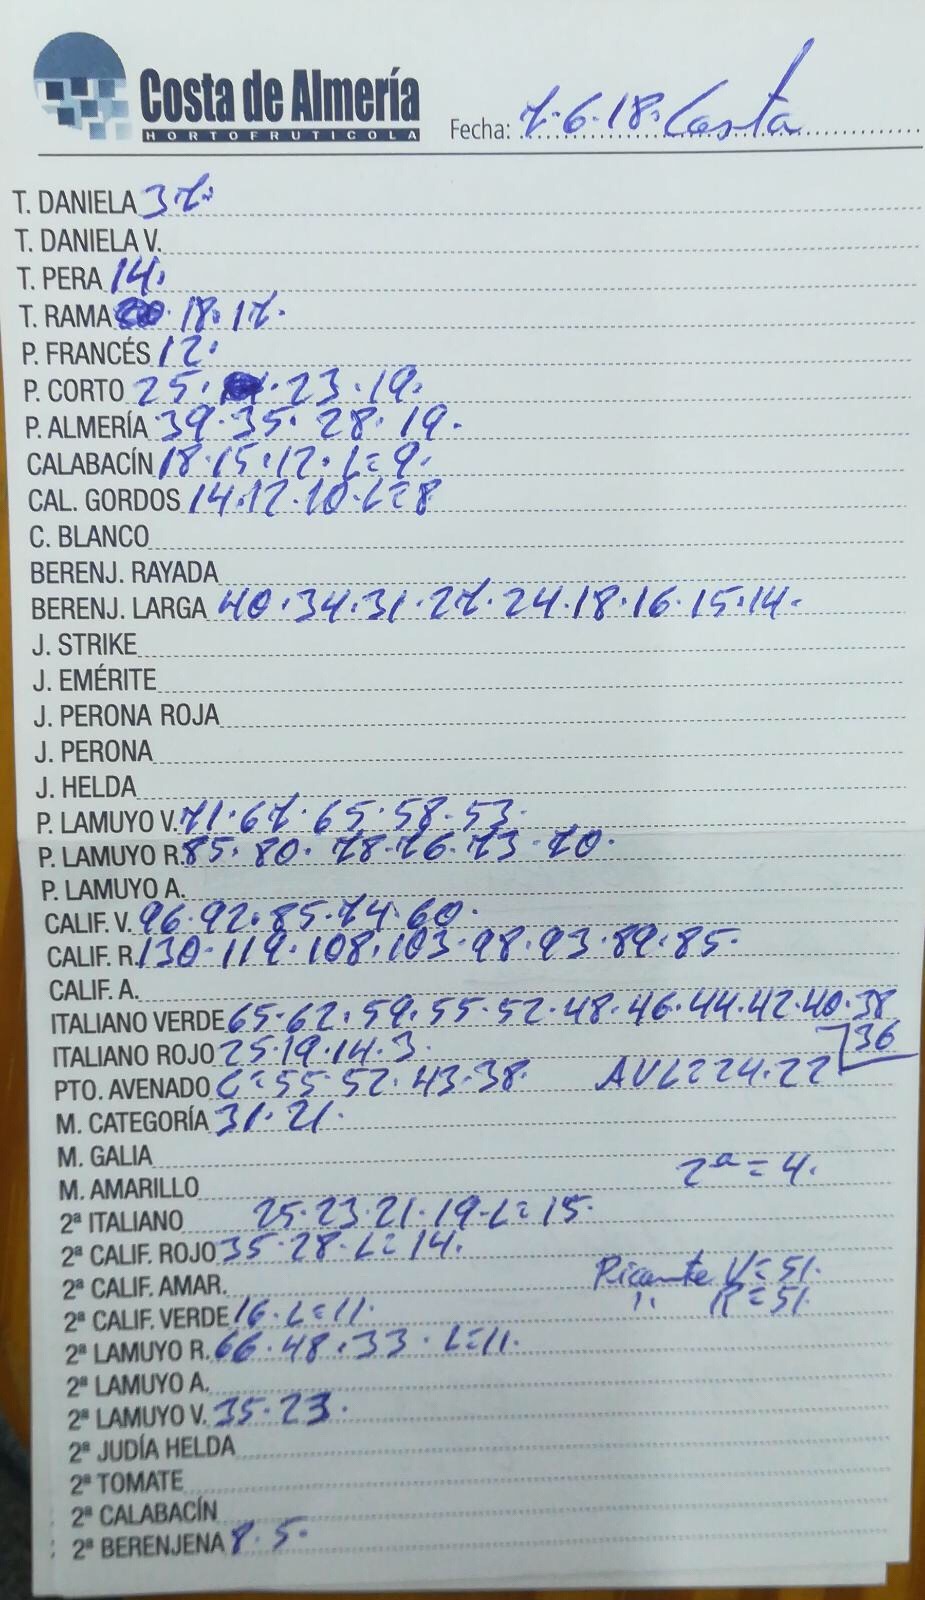 Costa de Almería
HORTOFRUTICOLA
Fecha: 7.6.18. Costa
T. DANIELA 37.
T. DANIELA V.
T. PERA 14.
T. RAMA 18. 17.
P. FRANCÉS 12.
P. CORTO 25. 23. 19.
P. ALMERÍA 39. 35. 28. 19.
CALABACÍN 18. 15. 12. L= 9.
CAL. GORDOS 14. 12. 10. L= 8
C. BLANCO
BERENJ. RAYADA
BERENJ. LARGA 40. 34. 31. 27. 24. 18. 16. 15. 14.
J. STRIKE
J. EMÉRITE
J. PERONA ROJA
J. PERONA
J. HELDA
P. LAMUYO V. 71. 67. 65. 58. 53.
P. LAMUYO R. 85. 80. 78. 76. 73. 70.
P. LAMUYO A.
CALIF. V. 96. 92. 85. 74. 60.
CALIF. R. 130. 119. 108. 103. 98. 93. 89. 85.
CALIF. A.
ITALIANO VERDE 65. 62. 59. 55. 52. 48. 46. 44. 42. 40. 38
36
ITALIANO ROJO 25. 19. 14. 3.
PTO. AVENADO C= 55. 52. 43. 38. AVL= 24. 22
M. CATEGORÍA 31. 21.
M. GALIA
2ª = 4.
M. AMARILLO
2ª ITALIANO 25. 23. 21. 19. L= 15.
2ª CALIF. ROJO 35. 28. L= 14.
2ª CALIF. AMAR. Picante V= 51.
" R= 51.
2ª CALIF. VERDE 16. L= 11.
2ª LAMUYO R. 66. 48. 33. L= 11.
2ª LAMUYO A.
2ª LAMUYO V. 35. 23.
2ª JUDÍA HELDA
2ª TOMATE
2ª CALABACÍN
2ª BERENJENA 8. 5.